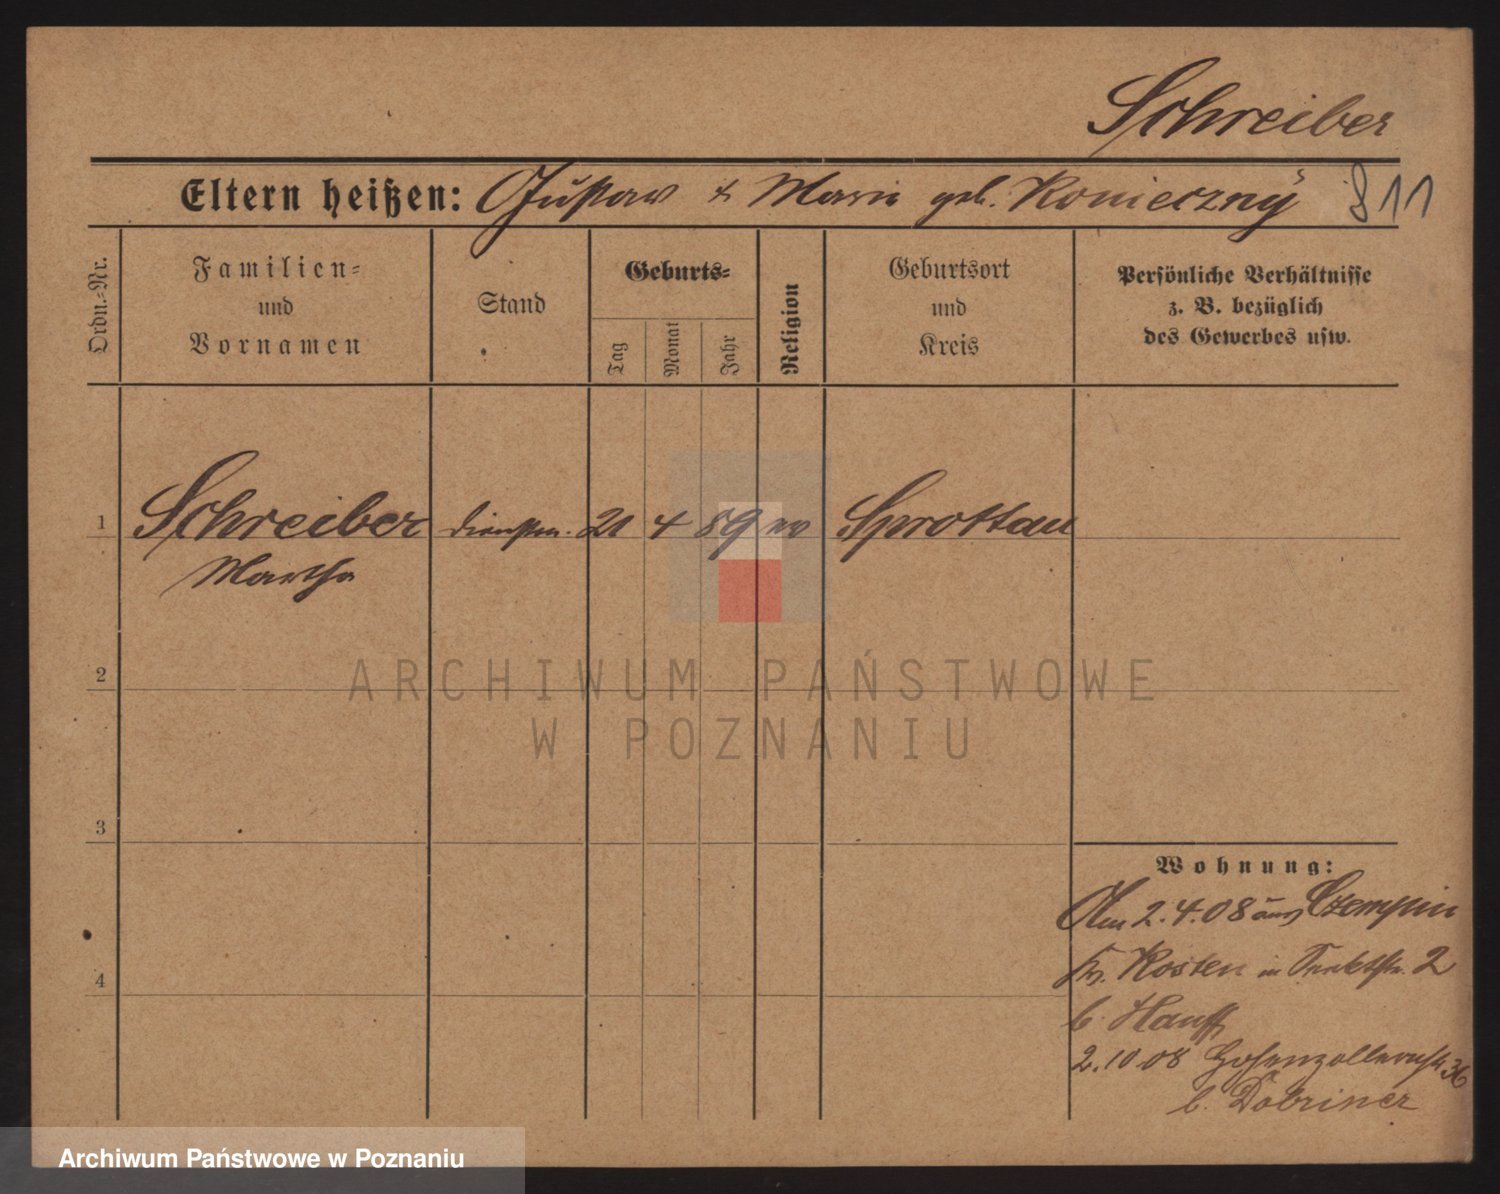 Schreiber
Eltern heißen: Gustav & Marie geb. Konieczny 811
Ordn.-Nr.
Familien-
und
Vornamen
Stand
Geburts-
Tag
Monat
Jahr
Religion
Geburtsort
und
Kreis
Persönliche Verhältnisse
z. B. bezüglich
des Gewerbes usw.
1 Schreiber dienstm. 21 4 89 ev Sprottau
Martha
2
3
4
Wohnung:
Am 2.4.08 aus Czempin
Kr. Kosten in 2
b. Hauff
2.10.08 Hohenzollernstr. 36
b. Dobriner
ARCHIWUM PAŃSTWOWE
W POZNANIU
Archiwum Państwowe w Poznaniu